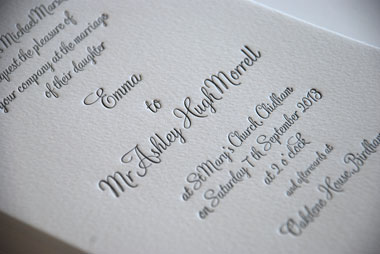 Michael Mars
request the pleasure of
your company at the marriage
of their daughter
Emma
to
Mr Ashley Hugh Morrell
at St Mary's Church Chidham
on Saturday 7th September 2013
at 2 o'clock
and afterwards at
Oaklore House, Birdham